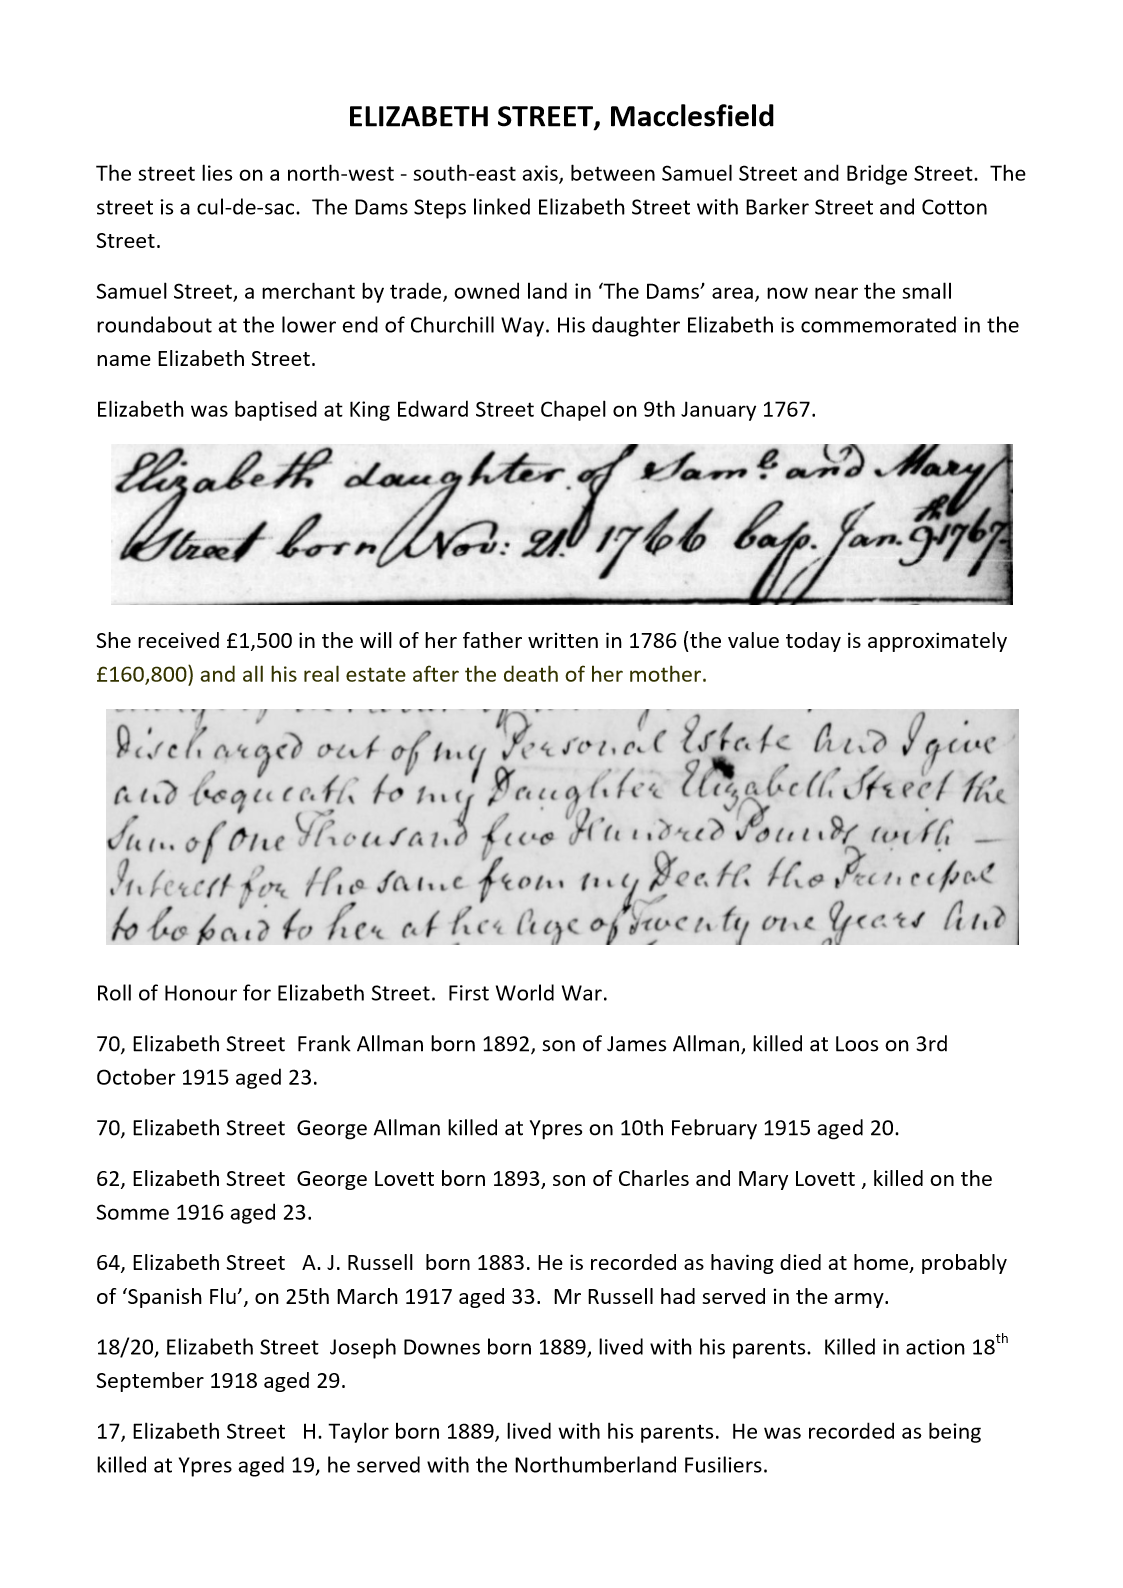 ELIZABETH STREET, Macclesfield
The street lies on a north-west - south-east axis, between Samuel Street and Bridge Street. The
street is a cul-de-sac. The Dams Steps linked Elizabeth Street with Barker Street and Cotton
Street.
Samuel Street, a merchant by trade, owned land in ‘The Dams’ area, now near the small
roundabout at the lower end of Churchill Way. His daughter Elizabeth is commemorated in the
name Elizabeth Street.
Elizabeth was baptised at King Edward Street Chapel on 9th January 1767.
Elizabeth daughter of Saml. and Mary
Street born Nov: 21. 1766 bap. Jan. 9th 1767.
She received £1,500 in the will of her father written in 1786 (the value today is approximately
£160,800) and all his real estate after the death of her mother.
Discharged out of my Personal Estate And I give
and bequeath to my Daughter Elizabeth Street the
Sum of One Thousand five Hundred Pounds with –
Interest for the same from my Death the Principal
to be paid to her at her Age of Twenty one Years And
Roll of Honour for Elizabeth Street. First World War.
70, Elizabeth Street Frank Allman born 1892, son of James Allman, killed at Loos on 3rd
October 1915 aged 23.
70, Elizabeth Street George Allman killed at Ypres on 10th February 1915 aged 20.
62, Elizabeth Street George Lovett born 1893, son of Charles and Mary Lovett , killed on the
Somme 1916 aged 23.
64, Elizabeth Street A. J. Russell born 1883. He is recorded as having died at home, probably
of ‘Spanish Flu’, on 25th March 1917 aged 33. Mr Russell had served in the army.
18/20, Elizabeth Street Joseph Downes born 1889, lived with his parents. Killed in action 18th
September 1918 aged 29.
17, Elizabeth Street H. Taylor born 1889, lived with his parents. He was recorded as being
killed at Ypres aged 19, he served with the Northumberland Fusiliers.